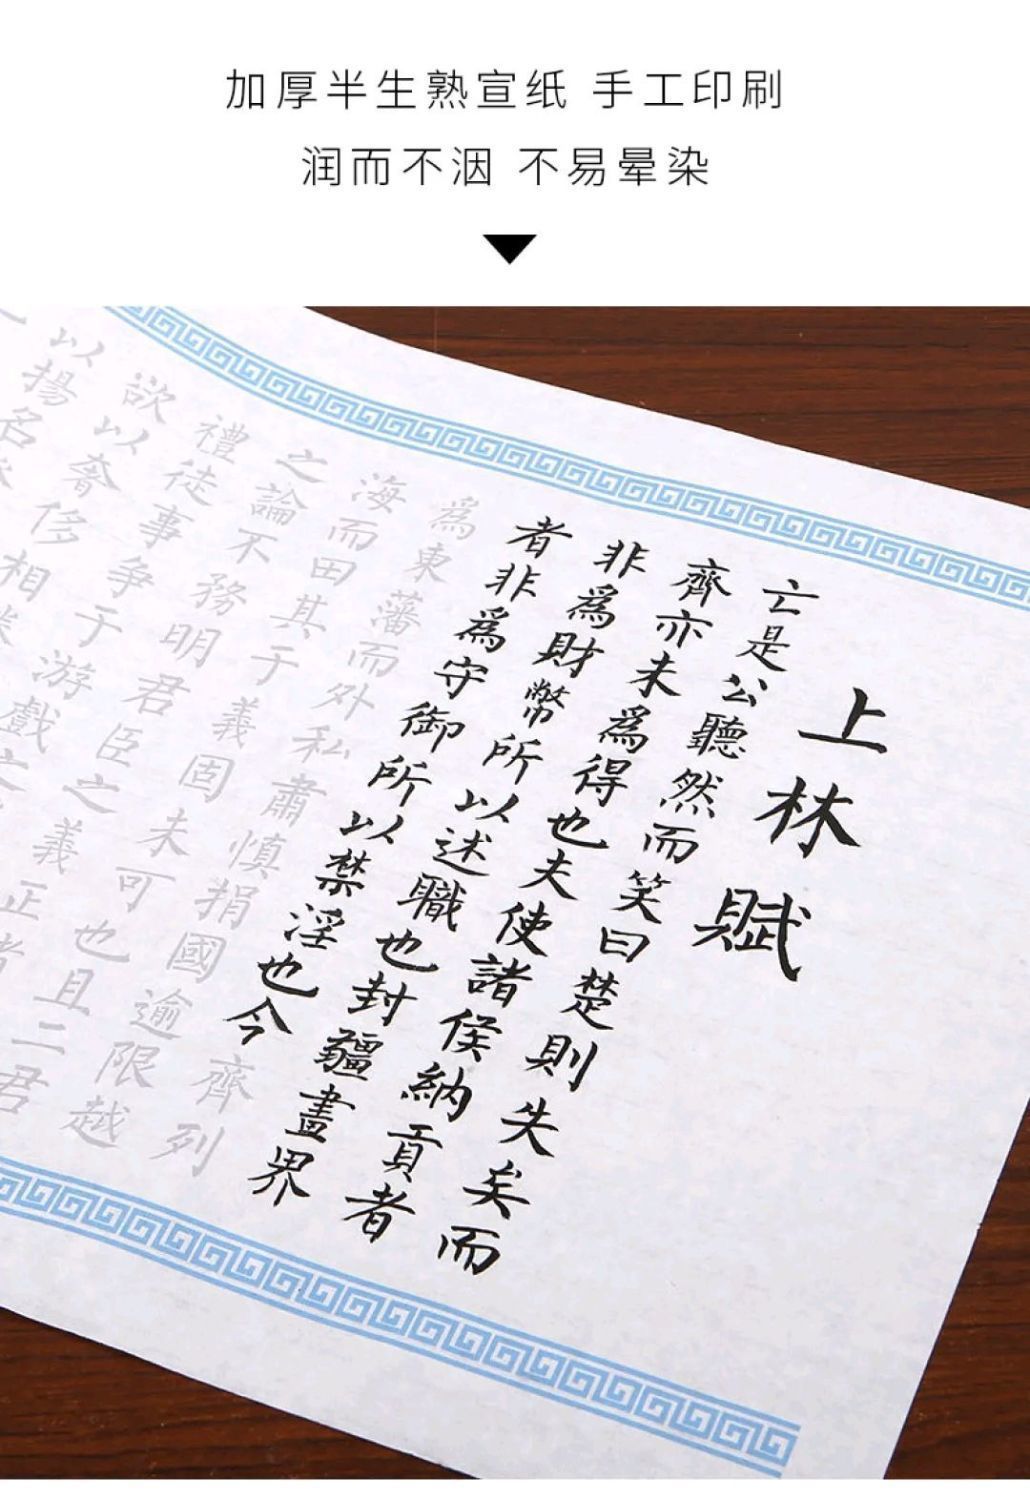 加厚半生熟宣纸 手工印刷
润而不洇 不易晕染
上林賦
亡是公聽然而笑曰楚則失矣而
齊亦未爲得也夫使諸侯納貢者
非爲財幣所以述職也封疆畫界
者非爲守御所以禁淫也今齊列
爲東藩而外私肅慎捐國逾限越
海而田其于義固未可也且二君
之論不務明君臣之義正
禮徒事争于游戲
欲以奢侈相
以揚名